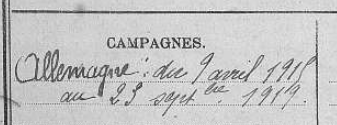 CAMPAGNES.
Allemagne : du 9 avril 1915
au 23 septbre 1919.